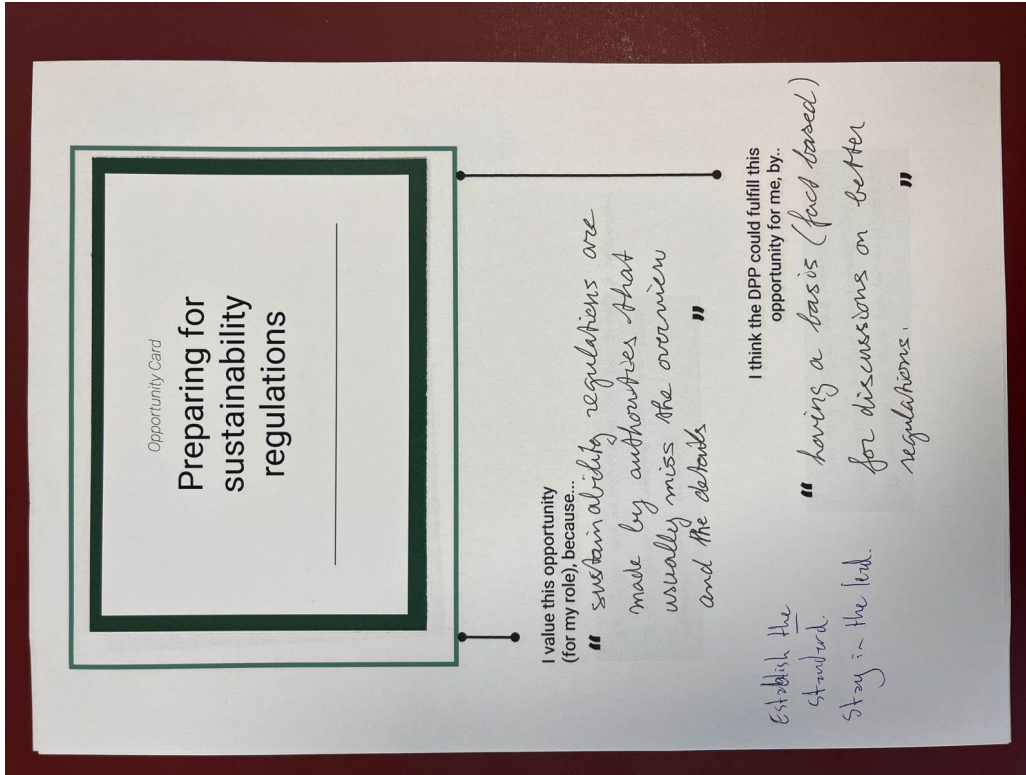 Opportunity Card
Preparing for
sustainability
regulations
I value this opportunity
(for my role), because...
“ sustainability regulations are
made by authorities that
usually miss the overview
and the details ”
I think the DPP could fulfill this
opportunity for me, by..
“ having a basis (fact based)
for discussions on better
regulations. ”
Establish the
standard.
Stay in the lead.